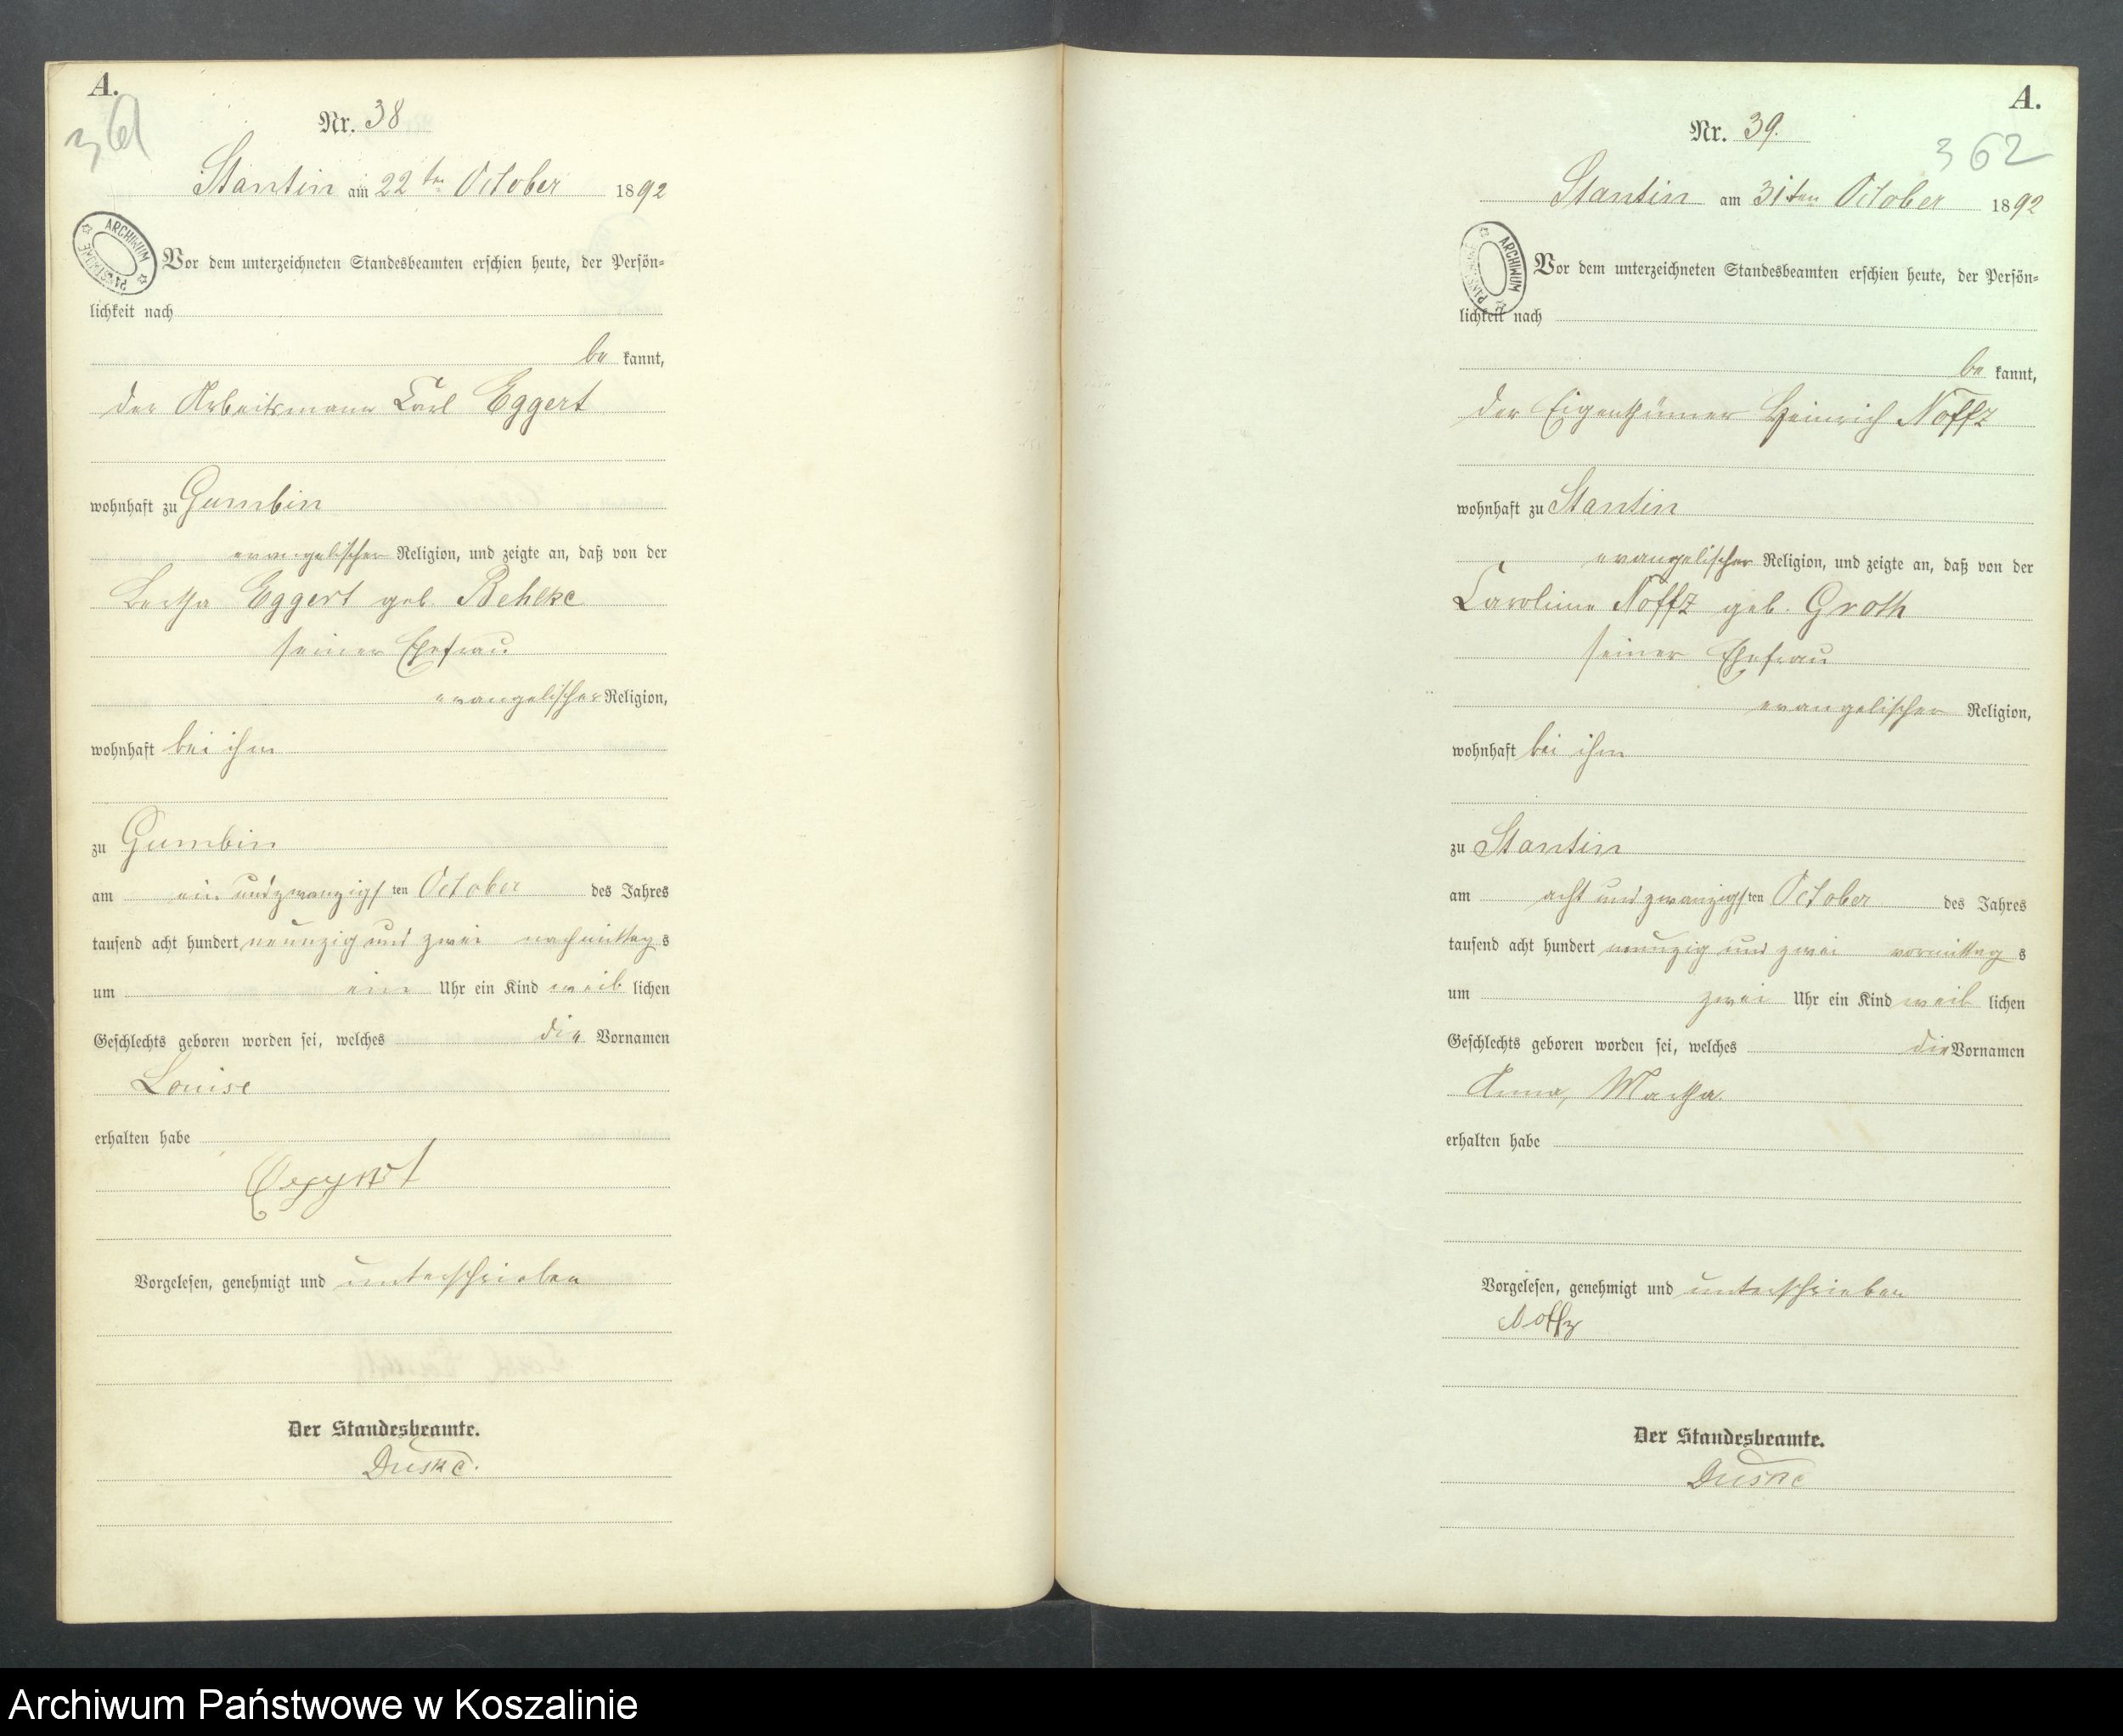 A.
361
Nr. 38
Stantin am 22ten October 1892
ARCHIWUM PAŃSTWOWE
Vor dem unterzeichneten Standesbeamten erschien heute, der Persön-
lichkeit nach
be kannt,
der Arbeitsmann Carl Eggert
wohnhaft zu Gumbin
evangelischer Religion, und zeigte an, daß von der
Bertha Eggert geb. Behlke
seiner Ehefrau
evangelischer Religion,
wohnhaft bei ihm
zu Gumbin
am ein und zwanzigsten October des Jahres
tausend acht hundert neunzig und zwei nachmittags
um ein Uhr ein Kind weib lichen
Geschlechts geboren worden sei, welches die Vornamen
Louise
erhalten habe
Eggert
Vorgelesen, genehmigt und unterschrieben
Der Standesbeamte.
Duske.
A.
362
Nr. 39.
Stantin am 31ten October 1892
ARCHIWUM PAŃSTWOWE
Vor dem unterzeichneten Standesbeamten erschien heute, der Persön-
lichkeit nach
be kannt,
der Eigenthümer Heinrich Noffz
wohnhaft zu Stantin
evangelischer Religion, und zeigte an, daß von der
Caroline Noffz geb. Groth
seiner Ehefrau
evangelischer Religion,
wohnhaft bei ihm
zu Stantin
am acht und zwanzigsten October des Jahres
tausend acht hundert neunzig und zwei vormittags
um zwei Uhr ein Kind weib lichen
Geschlechts geboren worden sei, welches die Vornamen
Anna, Martha
erhalten habe
Vorgelesen, genehmigt und unterschrieben
Noffz
Der Standesbeamte.
Duske
Archiwum Państwowe w Koszalinie